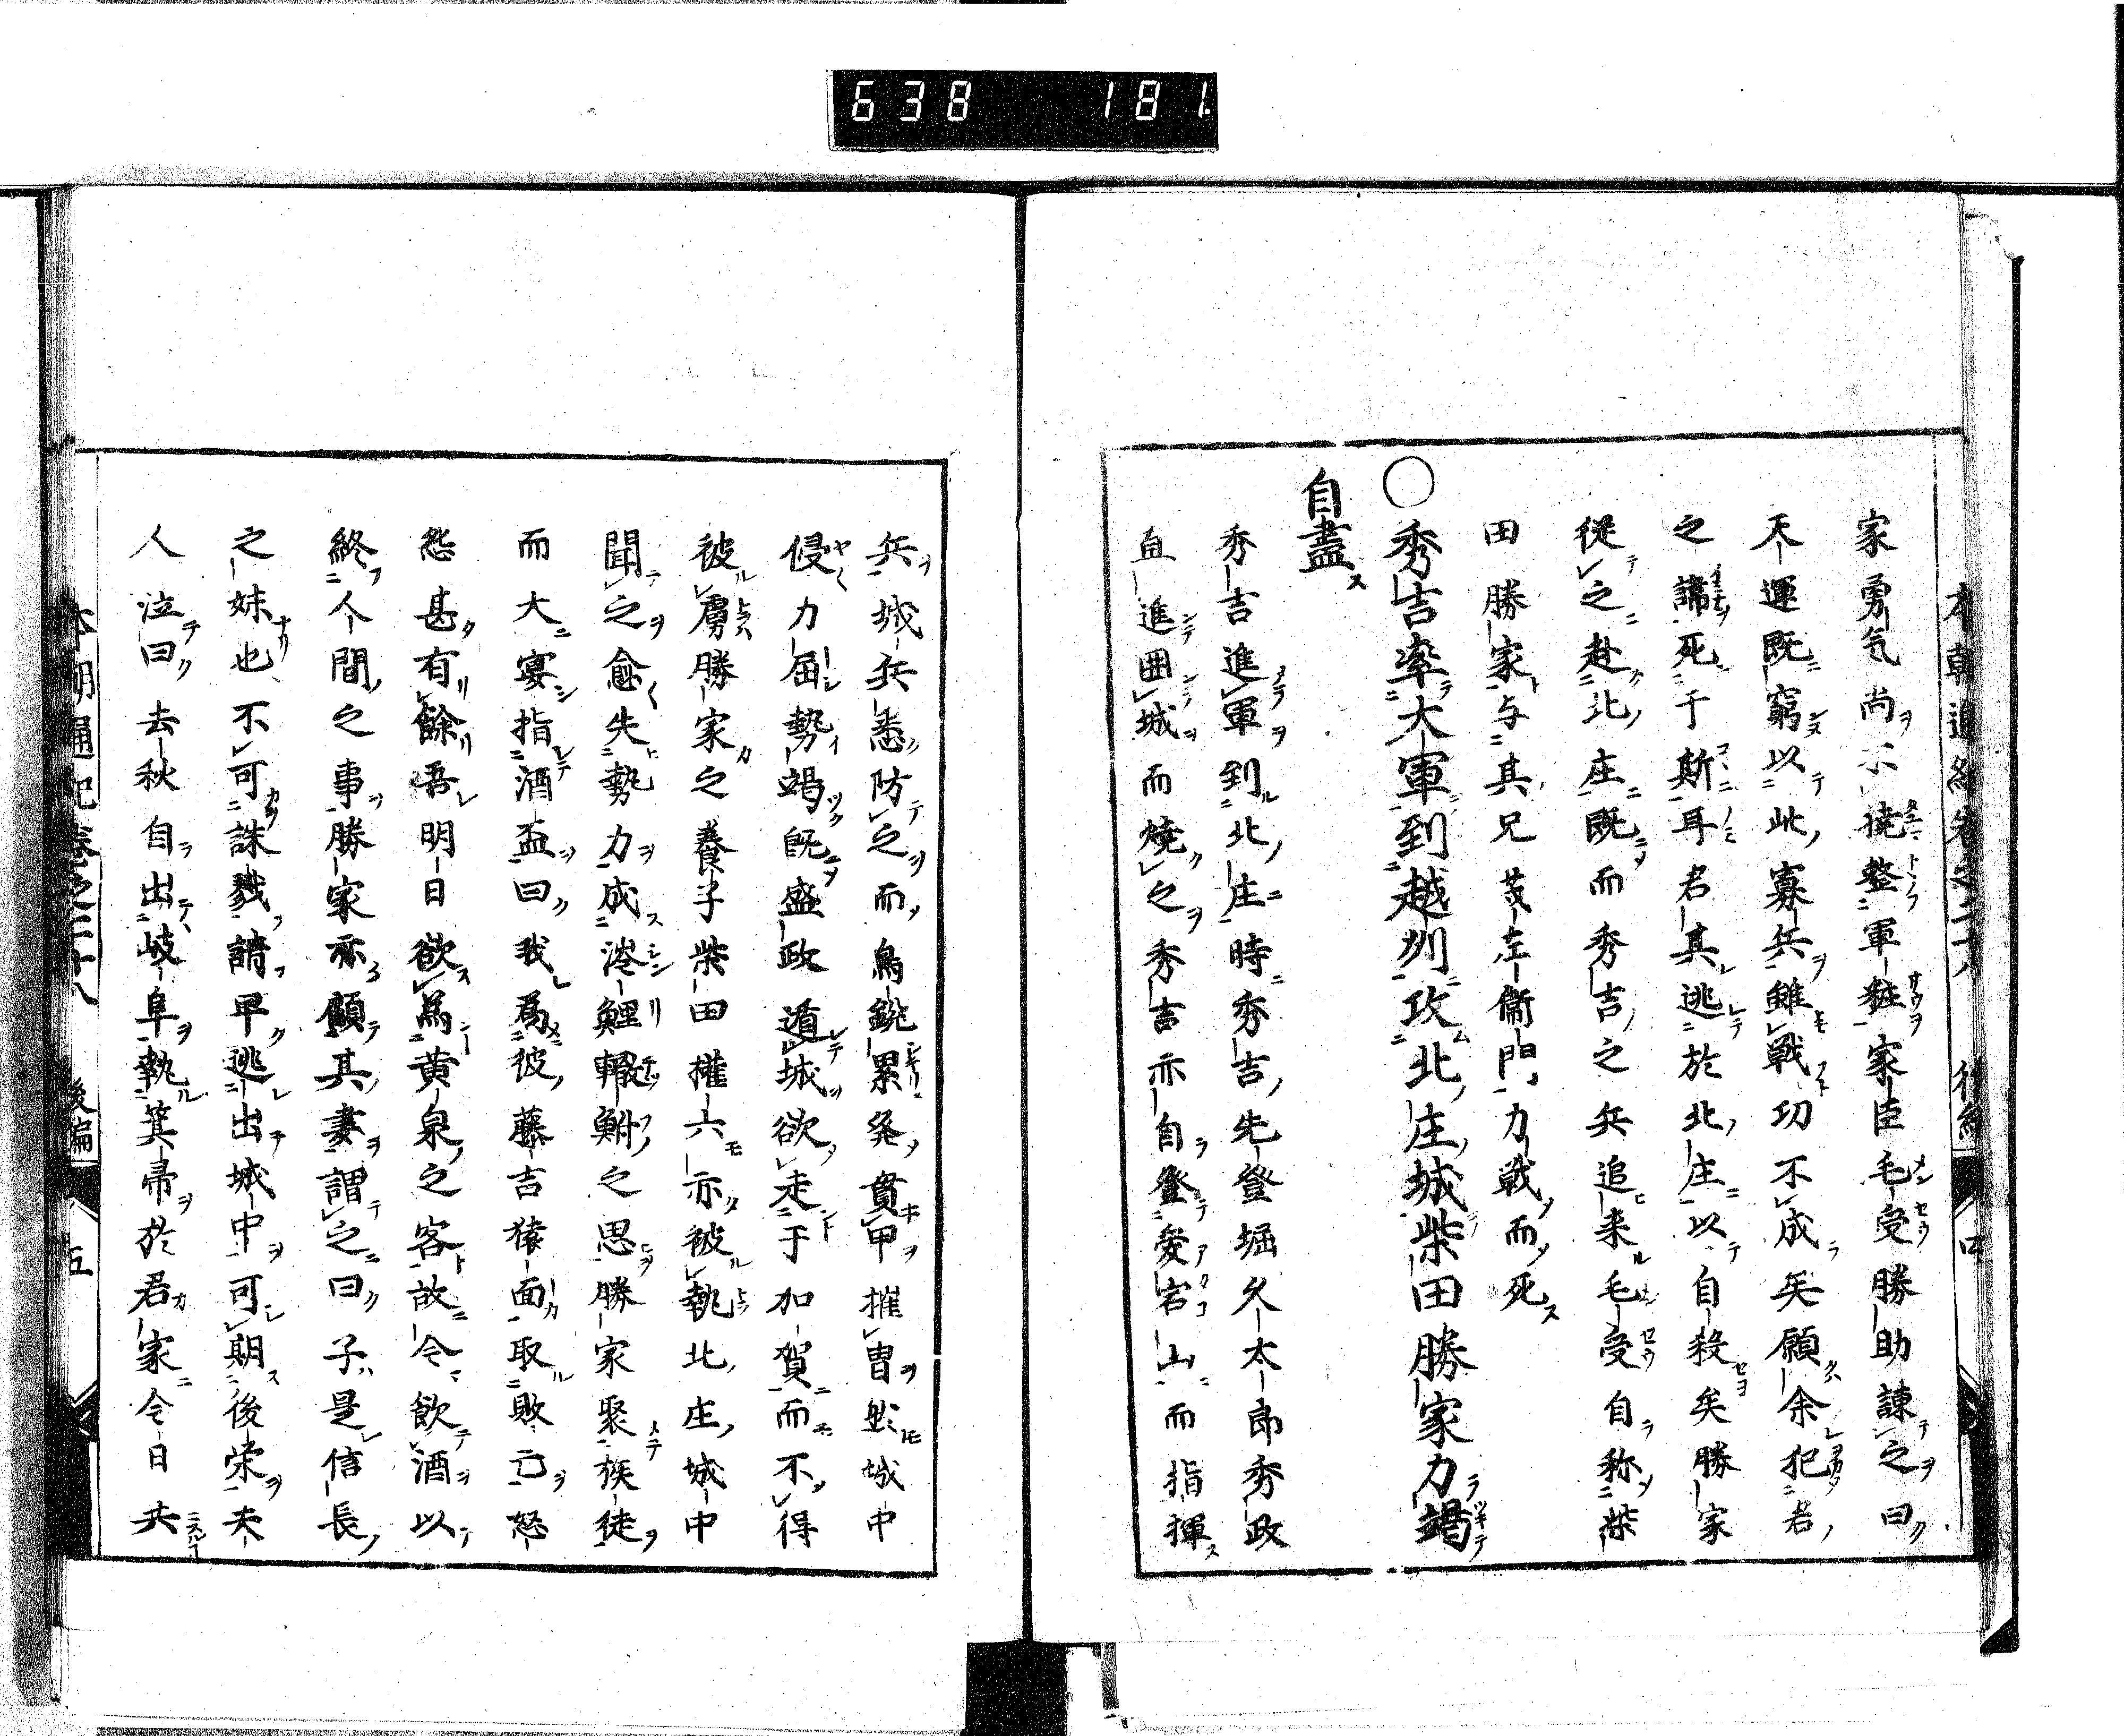 638 181
家勇気尚不撓整軍粧家臣毛受勝助諫之曰
天運既窮以此寡兵雖戦功不成矣願余犯君
之諱死于斯耳君其逃於北庄以自殺矣勝家
従之赴北庄既而秀吉之兵追来毛受自称柴
田勝家与其兄茂左衞門力戦而死
○秀吉率大軍到越州攻北庄城柴田勝家力竭
自盡
秀吉進軍到北庄時秀吉先登堀久太郎秀政
直進囲城而焼之秀吉亦自登愛宕山而指揮
兵城兵悉防之而鳥銃累発貫甲摧冑然城中
侵力屈勢竭既盛政遁城欲走于加賀而不得
被虜勝家之養子柴田權六亦被執北庄城中
聞之愈失勢力成涔鯉轍鮒之思勝家聚族徒
而大宴指酒盃曰我為彼藤吉猿面取敗亡怒
怨甚有餘吾明日欲為黄泉之客故令飲酒以
終人間之事勝家亦顧其妻謂之曰子是信長
之妹也不可誅戮請早逃出城中可期後栄夫
人泣曰去秋自出岐阜執箕帚於君家今日共
本朝通紀巻之二十八 後編 五